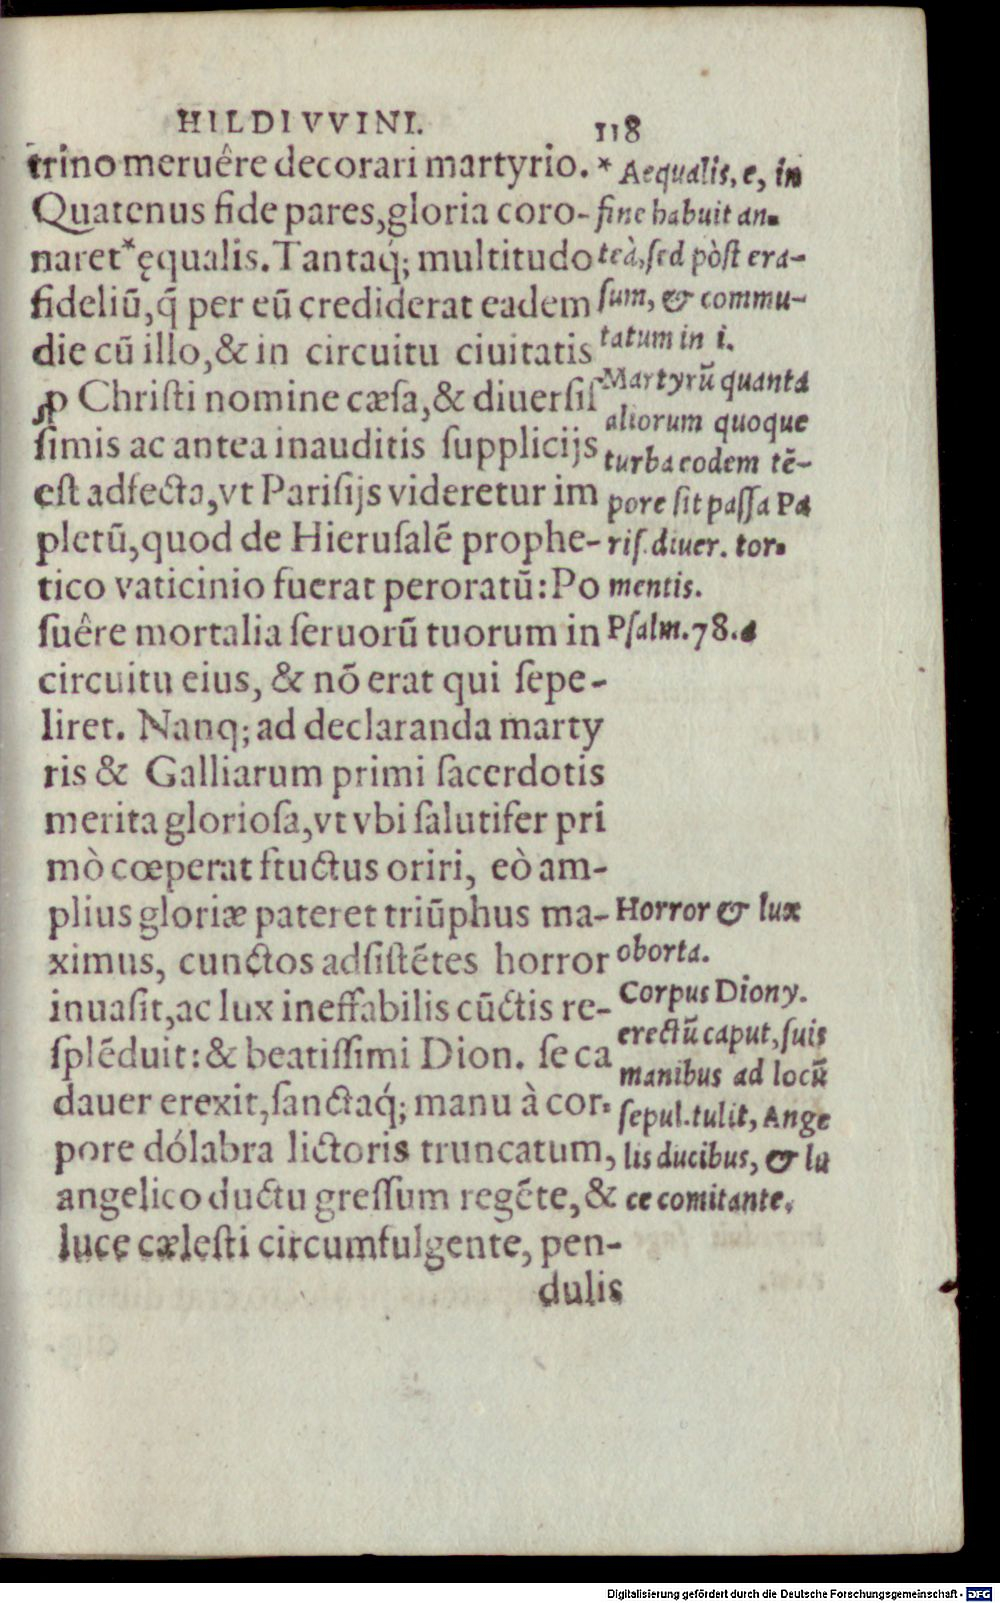 HILDIVVINI. 118
trino meruêre decorari martyrio.
Quatenus fide pares,gloria coro-
naret*ęqualis. Tantaq́; multitudo
fideliũ,q̃ per eũ crediderat eadem
die cũ illo,& in circuitu ciuitatis
ꝓ Christi nomine cæsa,& diuersiſ
ſimis ac antea inauditis ſupplicijs
eſt adfecta,vt Pariſijs videretur im
pletũ,quod de Hieruſalẽ prophe-
tico vaticinio fuerat peroratũ: Po
ſuêre mortalia ſeruorũ tuorum in
circuitu eius, & nõ erat qui ſepe-
liret. Nanq; ad declaranda marty
ris & Galliarum primi ſacerdotis
merita glorioſa,vt vbi ſalutifer pri
mò cœperat fructus oriri, eò am-
plius gloriæ pateret triũphus ma-
ximus, cunctos adſiſtẽtes horror
inuaſit,ac lux ineffabilis cũctis re-
ſplẽduit: & beatiſſimi Dion. ſe ca
dauer erexit,ſanctaq́; manu à cor-
pore dólabra lictoris truncatum,
angelico ductu greſſum regẽte, &
luce cæleſti circumfulgente, pen-
dulis
* Aequalis, e, in
fine habuit an-
teà,ſed pòſt era-
ſum, & commu-
tatum in i.
Martyrũ quanta
aliorum quoque
turba eodem tẽ-
pore ſit paſſa Pa
riſ. diuer. tor-
mentis.
Pſalm.78.
Horror & lux
oborta.
Corpus Diony.
erectũ caput, ſuis
manibus ad locũ
ſepul.tulit, Ange
lis ducibus, & lu
ce comitante.
Digitalisierung gefördert durch die Deutsche Forschungsgemeinschaft - DFG